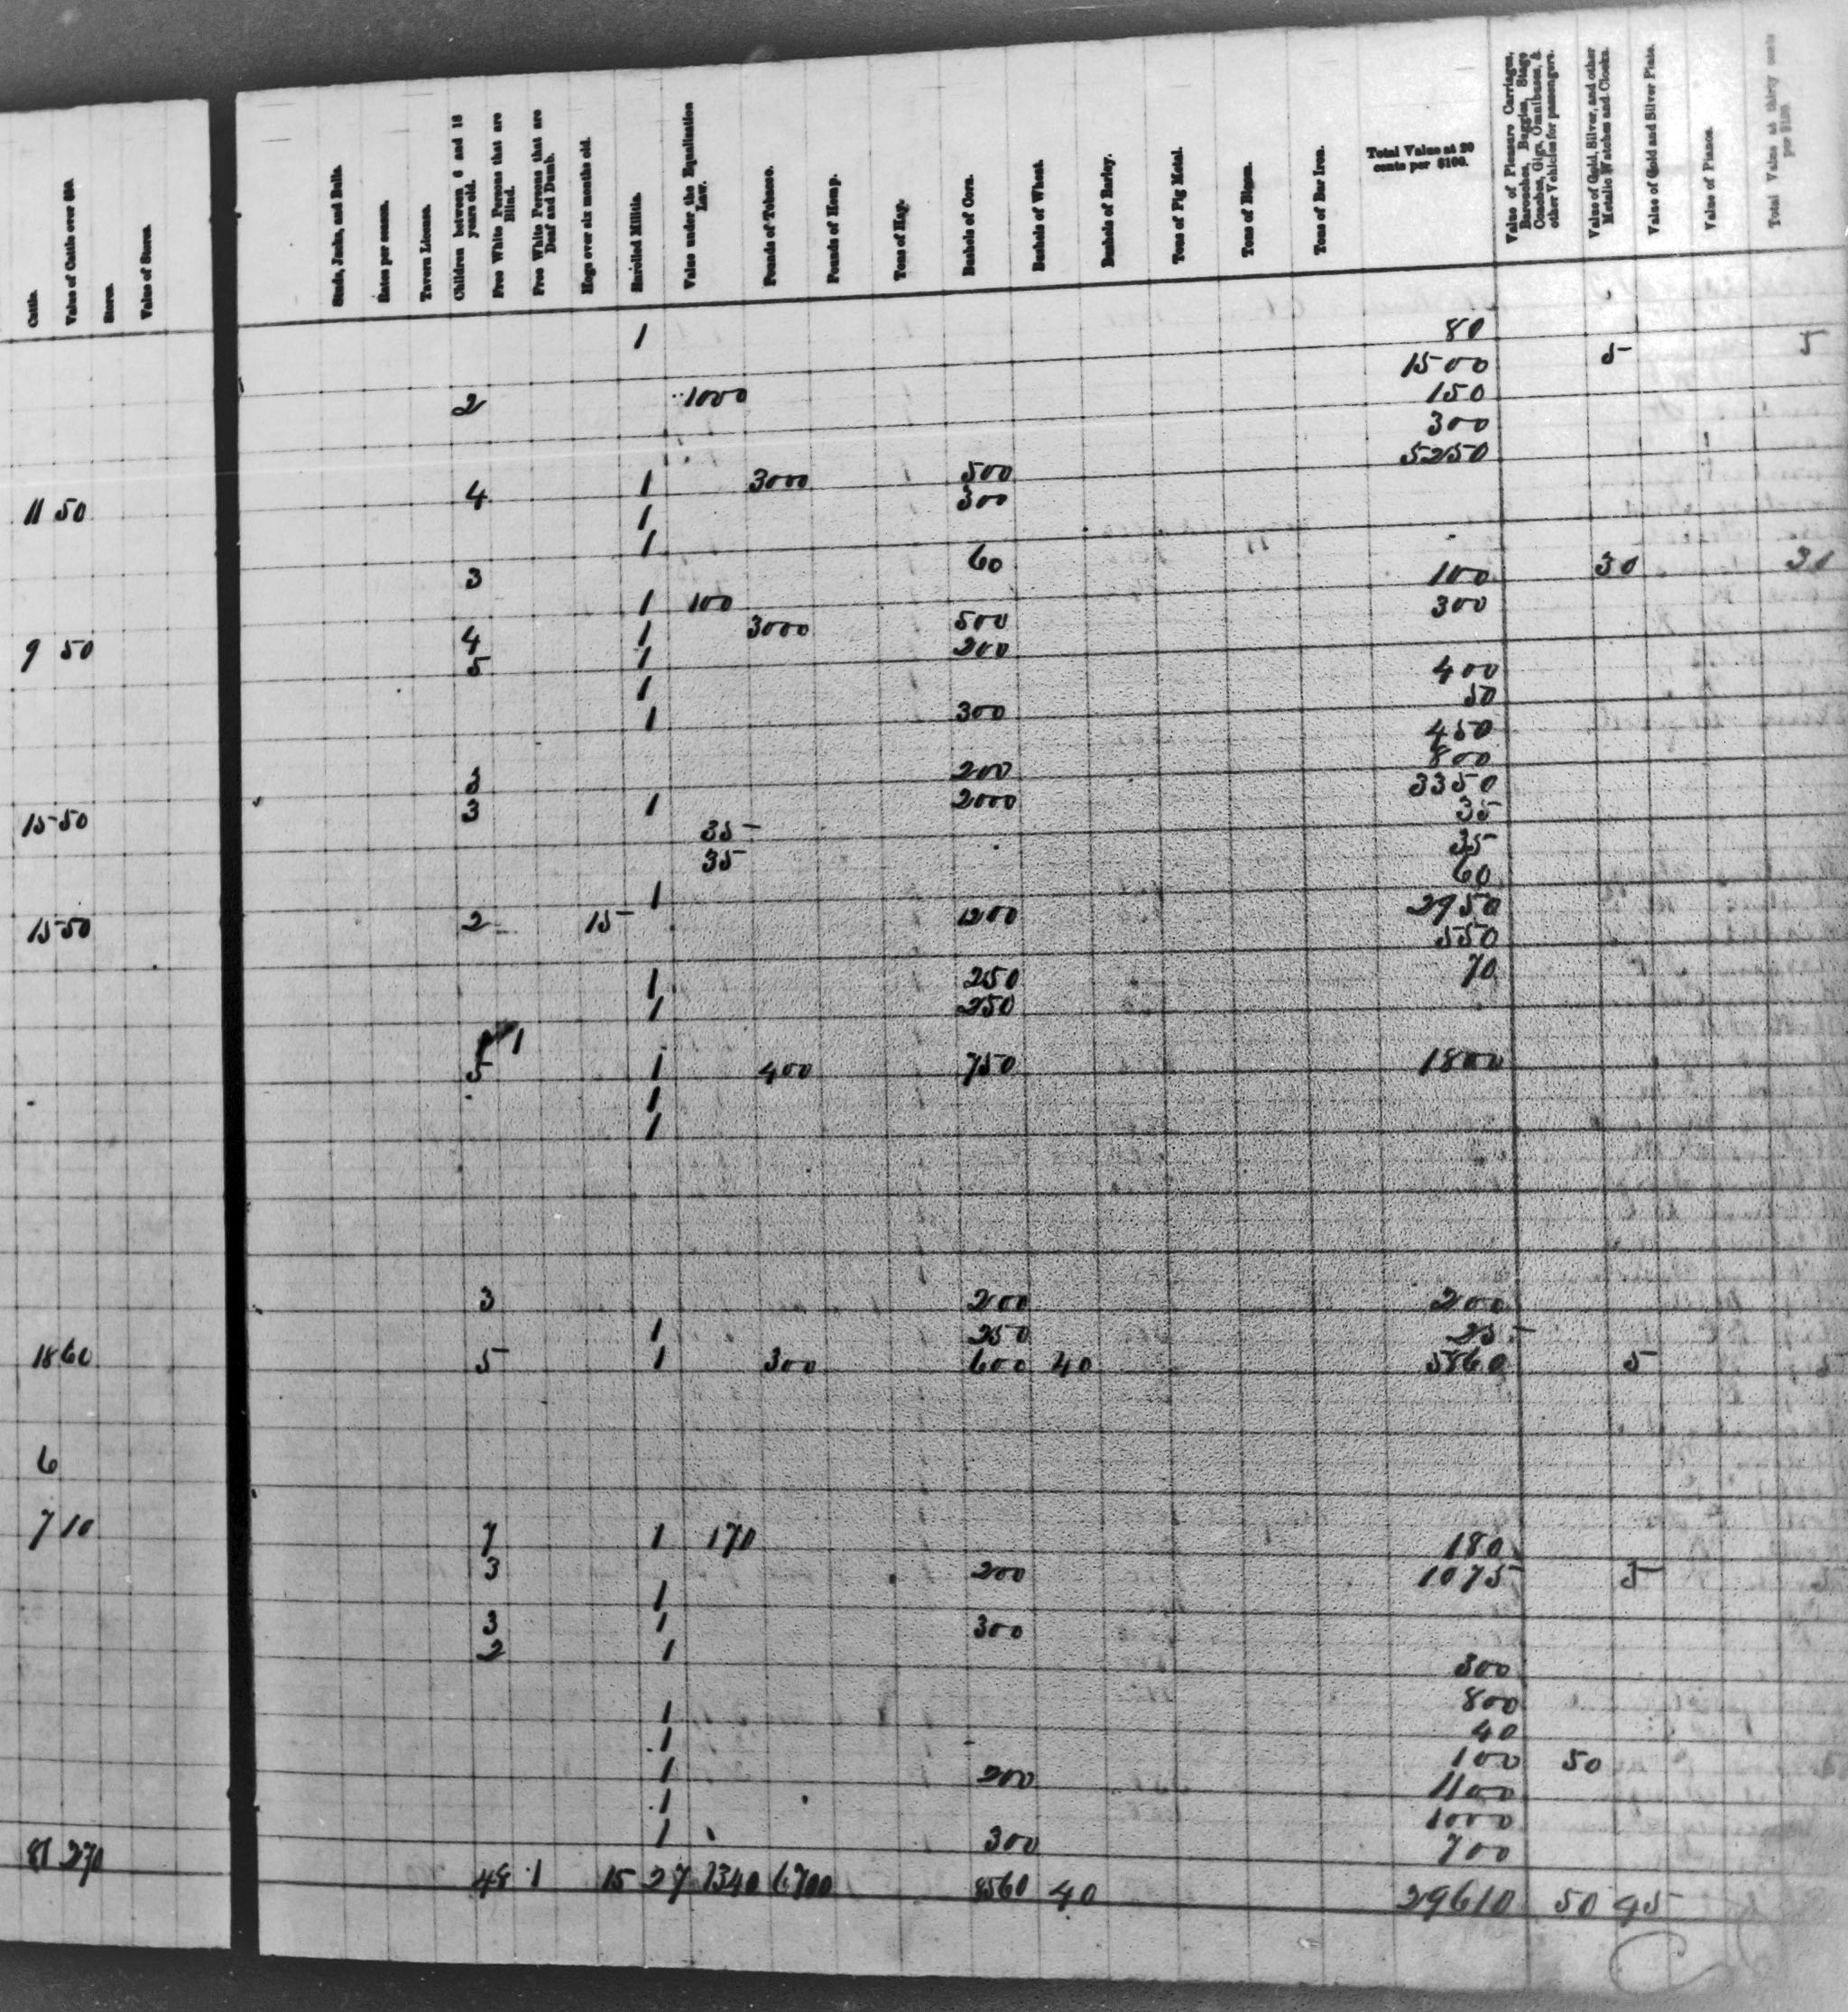 Cattle. Value of Cattle over $50. Stores. Value of Stores. Studs, Jacks, and Bulls. Rates per season. Tavern License. Children between 6 and 18 years old. Free White Persons that are Blind. Free White Persons that are Deaf and Dumb. Hogs over six months old. Enrolled Militia. Value under the Equalization Law. Pounds of Tobacco. Pounds of Hemp. Tons of Hay. Bushels of Corn. Bushels of Wheat. Bushels of Barley. Tons of Pig Metal. Tons of Bloom. Tons of Bar Iron. Total Value at 20 cents per $100. Value of Pleasure Carriages, Barouches, Buggies, Stage Coaches, Gigs, Omnibuses, & other Vehicles for passengers. Value of Gold, Silver, and other Metalic Watches and Clocks. Value of Gold and Silver Plate. Value of Pianos. Total Value at thirty cents per $100
1 80
1500 5 5
2 1000 150
300
5250
4 1 3000 500
11 50 1 300
1
3 60 100 30 30
1 100 300
4 1 3000 500
9 50 5 1 200
1 400
1 300 50
450
800
3 200 3350
15 50 3 1 2000 35
35 35
35 60
1 2950
15 50 2 15 1200 550
1 250 70
1 250
1
5 1 400 750 1800
1
1
3 200 200
1 250 25
18 60 5 1 300 600 40 5860 5 5
6
7 10 7 1 170 180
3 200 1075 5
1
3 1 300
2 1 300
1 800
1 40
1 200 100 50
1 1100
1000
1 300 700
81 270 48 1 15 27 1340 6700 8560 40 29610 50 45